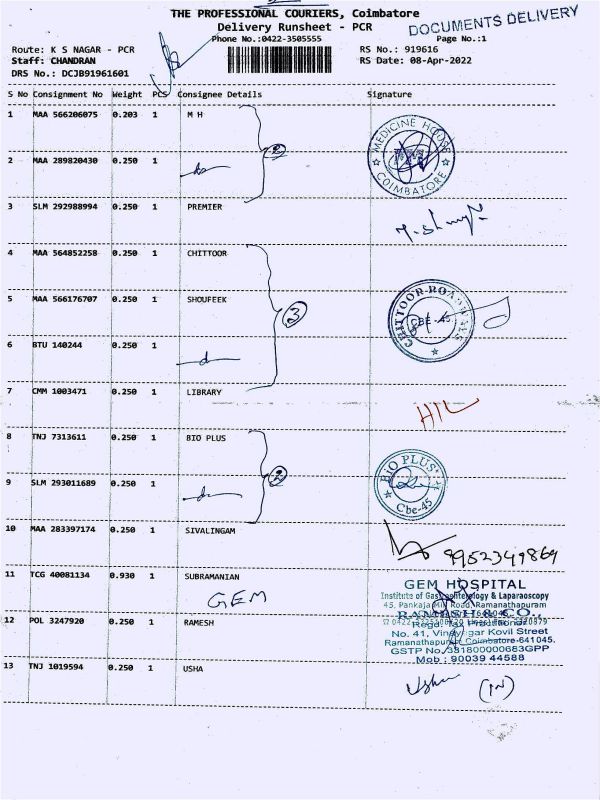 THE PROFESSIONAL COURIERS, Coimbatore
DOCUMENTS DELIVERY
Delivery Runsheet - PCR
Phone No.:0422-3505555
Page No.:1
Route: K S NAGAR - PCR
RS No.: 919616
Staff: CHANDRAN
RS Date: 08-Apr-2022
DRS No.: DCJB91961601
S No Consignment No Weight PCS Consignee Details Signature
1 MAA 566206075 0.203 1 M H
MEDICINE HOUSE
COIMBATORE
2 MAA 289820430 0.250 1
2
3 SLM 292988994 0.250 1 PREMIER
4 MAA 564852258 0.250 1 CHITTOOR
5 MAA 566176707 0.250 1 SHOUFEEK
3
CHITTOOR ROADWAYS
CBE-45
6 BTU 140244 0.250 1
7 CMM 1003471 0.250 1 LIBRARY
8 TNJ 7313611 0.250 1 BIO PLUS
2
BIO PLUS
Cbe-45
9 SLM 293011689 0.250 1
10 MAA 283397174 0.250 1 SIVALINGAM
9952349869
11 TCG 40081134 0.930 1 SUBRAMANIAN
GEM
GEM HOSPITAL
Institute of Gastroenterology & Laparaoscopy
45, Pankaja Mill Road, Ramanathapuram
12 POL 3247920 0.250 1 RAMESH
RAMESH & CO.,
Regd. Tax Practitioner
No. 41, Vinayagar Kovil Street
Ramanathapuram, Coimbatore-641045.
GSTP No/331800000683GPP
Mob : 90039 44588
13 TNJ 1019594 0.250 1 USHA
Usha
(IN)